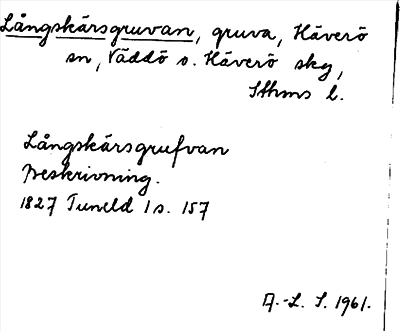 Långskärsgruvan, gruva, Häverö
sn, Väddö o. Häverö skg,
Sthms l.
Långskärsgrufvan
Beskrivning.
1827 Tuneld 1 s. 157
A.-L. S. 1961.